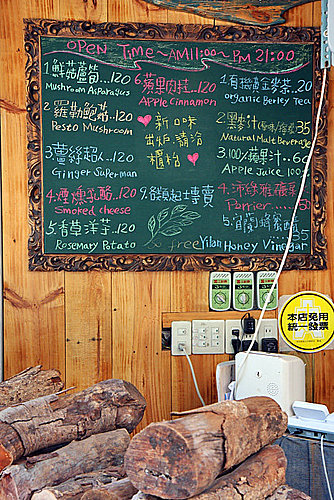 OPEN TIME~AM11:00~PM 21:00
1.鮮菇蘆筍...120
Mushroom Asparagus
2.羅勒鮑菇...120
Pesto Mushroom
3.薑絲超人...120
Ginger Superman
4.煙燻乳酪..120
Smoked cheese
5.香草洋芋..120
Rosemary Potato
6.蘋果肉桂...120
Apple Cinnamon
新口味
出爐.請洽
櫃枱
free
1.有機黃金麥茶..20
organic Berley Tea
2.黑麥汁
35
Natural Malt Beverage
3.100%蘋果汁..60
Apple Juice 100%
4.沛綠雅礦泉
Perrier
5.宜蘭蜂蜜醋
35
Yilan Honey Vinegar
本店免用
統一發票